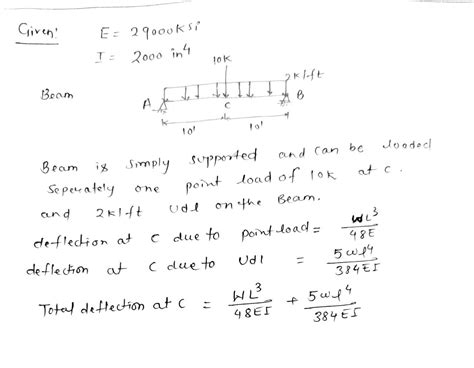 Given: E = 29000ksi
I = 2000 in4
10K
2k/-ft
Beam
A
C
B
10'
10'
Beam is simply supported and can be loaded
Seperately one point load of 10K at c.
and 2k/-ft Udl on the Beam.
deflection at C due to point load = WL3/48E
deflection at C due to Udl = 5wl4/384EI
Total deflection at C = WL3/48EI + 5wl4/384EI